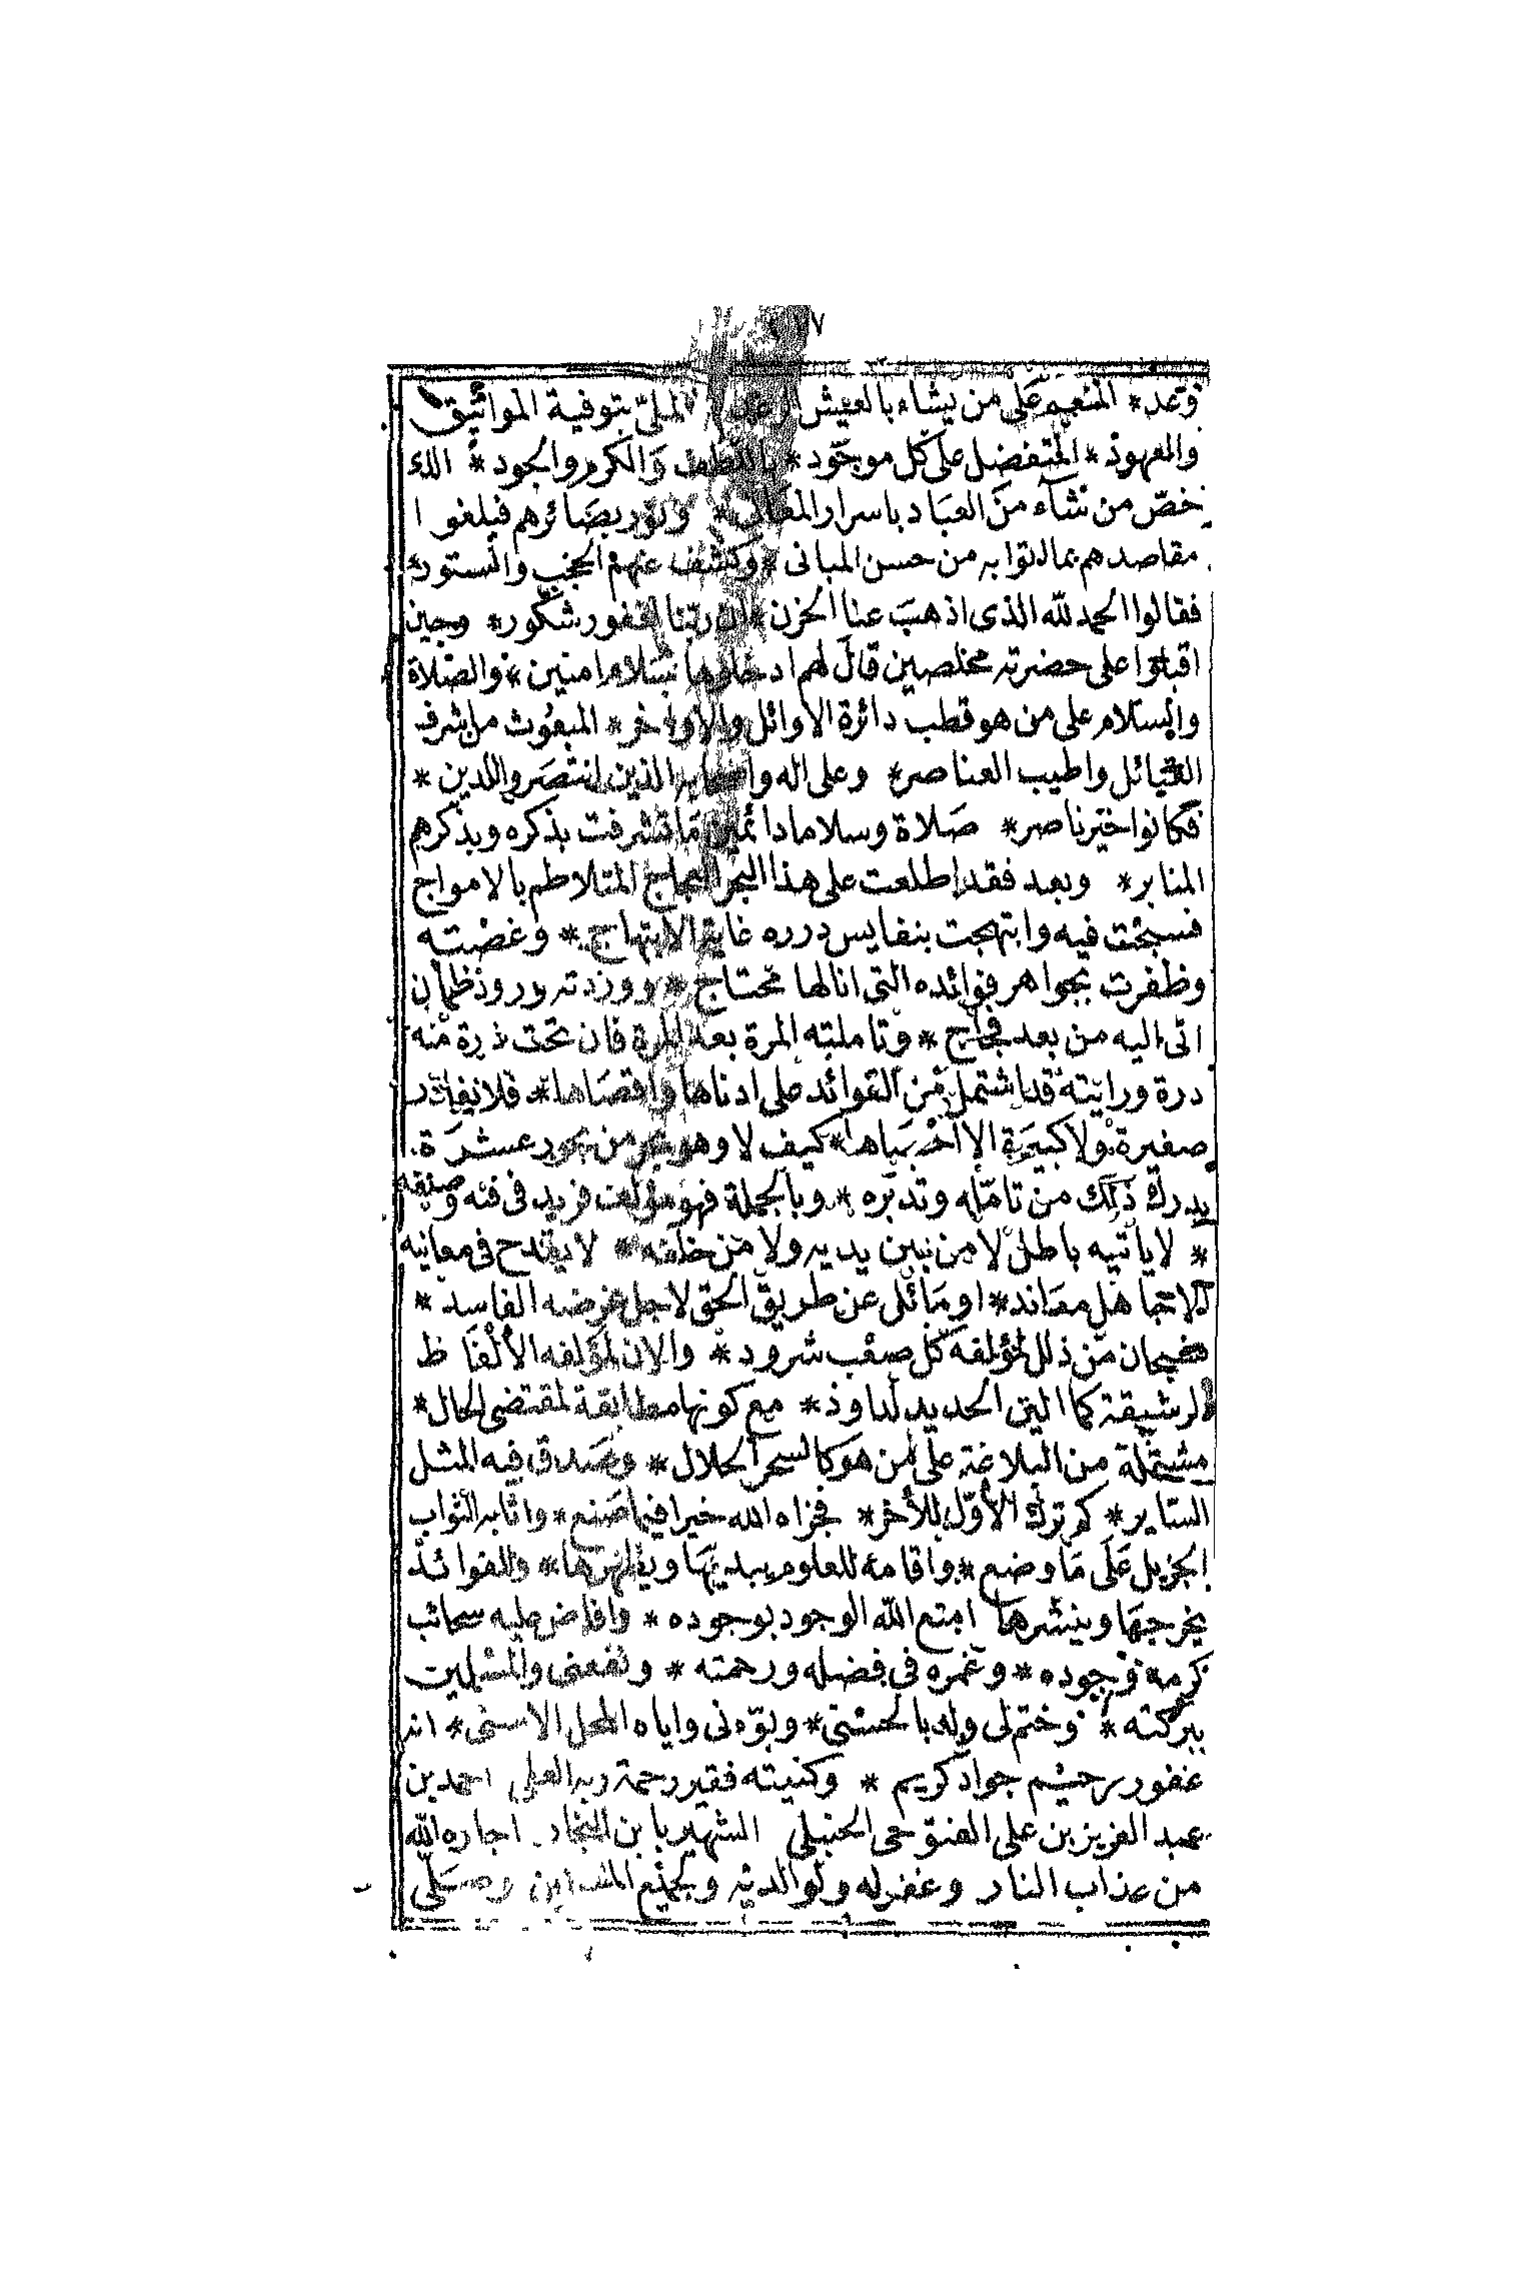 وعد * المنعم على من يشاء بالعيش الرغد الملىّ بتوفية المواثيق
والعهود * المتفضل على كل موجود * باللطف والكرم والجود * الذى
خصّ من شآء من العباد باسرار المعانى * ونور بصائرهم فبلغوا
مقاصدهم بما لاتوا به من حسن المبانى * وكشف عنهم الحجب والستور
فقالوا الحمد لله الذى اذهب عنا الحزن * ان ربنا لغفور شكور * وحين
اقبلوا على حضرته مخلصين قال لهم ادخلوها بسلام امنين * والصلاة
والسلام على من هو قطب دائرة الاوائل والاواخر * المبعوث من اشرف
القبائل واطيب العناصر * وعلى اله واصحابه الذين انتصروا للدين *
فكانوا خير ناصر * صلاة وسلاما دائمين ما تشرفت بذكره وبذكرهم
المنابر * وبعد فقد اطلعت على هذا البحر العجاج المتلاطم بالامواج
فسبحت فيه وابتهجت بنفايس درره غاية الابتهاج * وغصته
وظفرت بجواهر فوائده التى انالها محتاج * ووردته ورود ظمآن
اتى اليه من بعد فجاج * وتاملته المرة بعد المرة فان تحت ذرة منه
درة ورايته قد اشتمل من الفوائد على ادناها واقصاها * فلا يغادر
صغيرة ولا كبيرة الا احصاها * كيف لا وهو بحر من بحور عشرة
يدرك ذلك من تامله وتدبره * وبالجملة فهو مؤلف فريد فى فنه وصنفه
* لا ياتيه باطل لا من بين يديه ولا من خلفه * لا يقدح فى معانيه
الا تجاهل معاند * او مائل عن طريق الحق لاجل غرضه الفاسد *
فسبحان من ذلل لمؤلفه كل صعب شرود * والان لمؤلفه الألفاظ
الرشيقة كما الين الحديد لداود * مع كونها مطابقة لمقتضى الحال *
مشتملة من البلاغة على من هو كالسحر الحلال * وصدق فيه المثل
الساير * كم ترك الأوّل للأخر * فجزاه الله خيرا فيما صنع * واثابه الثواب
الجزيل على ما وضع * واقامه للعلوم يبديها ويظهرها * وللفوائد
يخرجها وينشرها امتع الله الوجود بوجوده * وافاض عليه سحائب
كرمه وجوده * وغمره فى فضله ورحمته * ونفعنى والمسلمين
ببركته * وختم لى وله بالحسنى * وبوّءنى واياه المحل الاسنى * انه
غفور رحيم جواد كريم * وكتبته فقير رحمة ربه العلى احمد بن
عبد العزيز بن على الفتوحى الحنبلى الشهير بابن النجار اجاره الله
من عذاب النار وغفر له ولوالديه ولجميع المسلمين وصلى